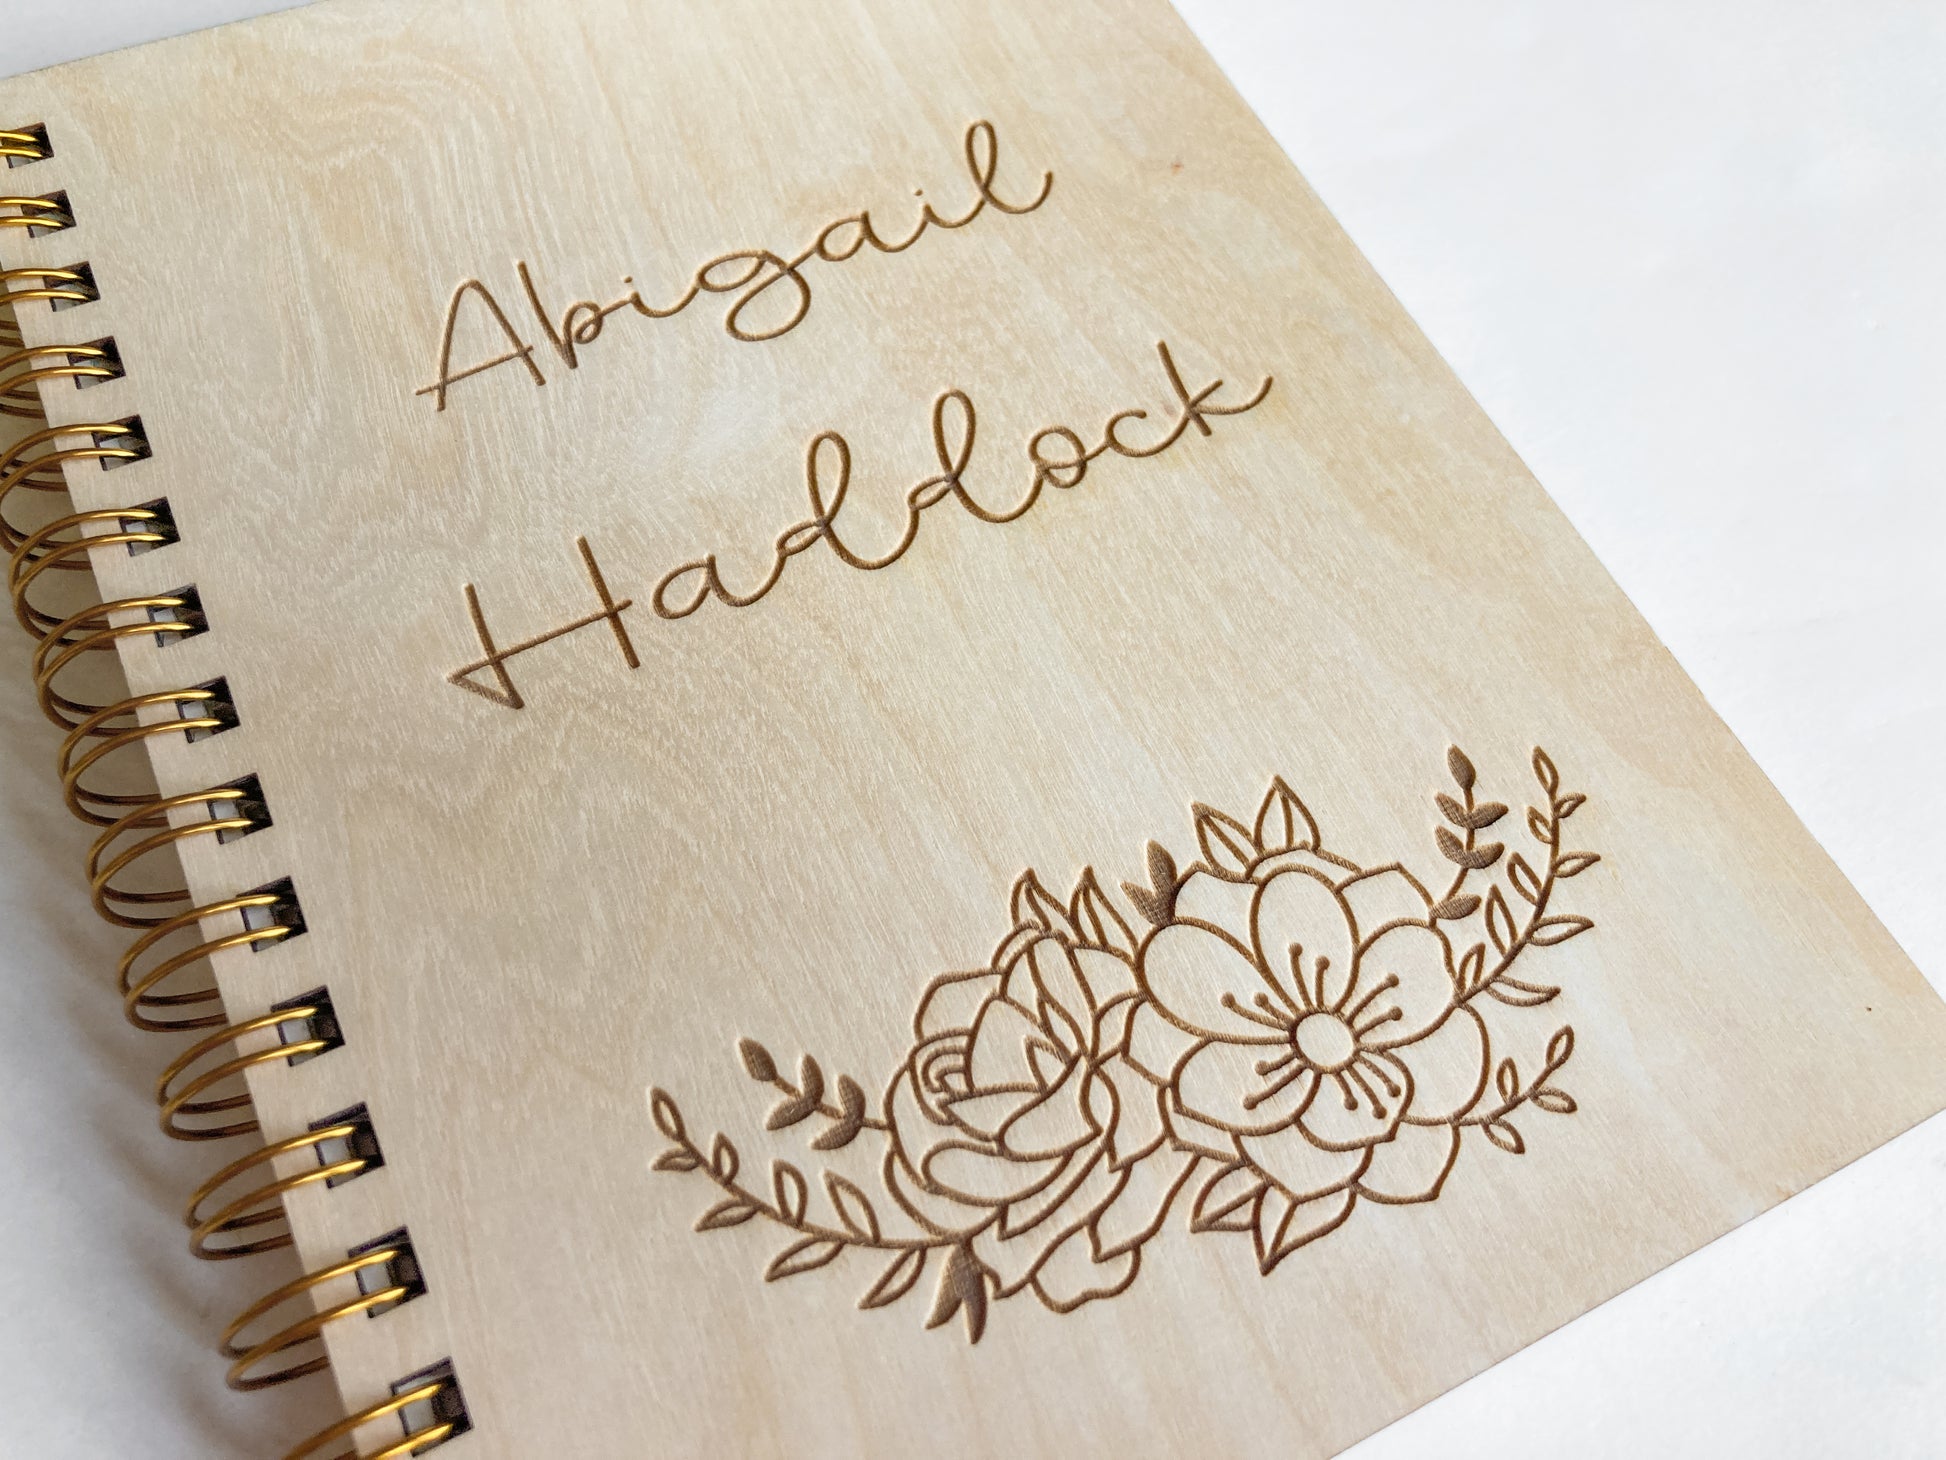 Abigail
Haddock